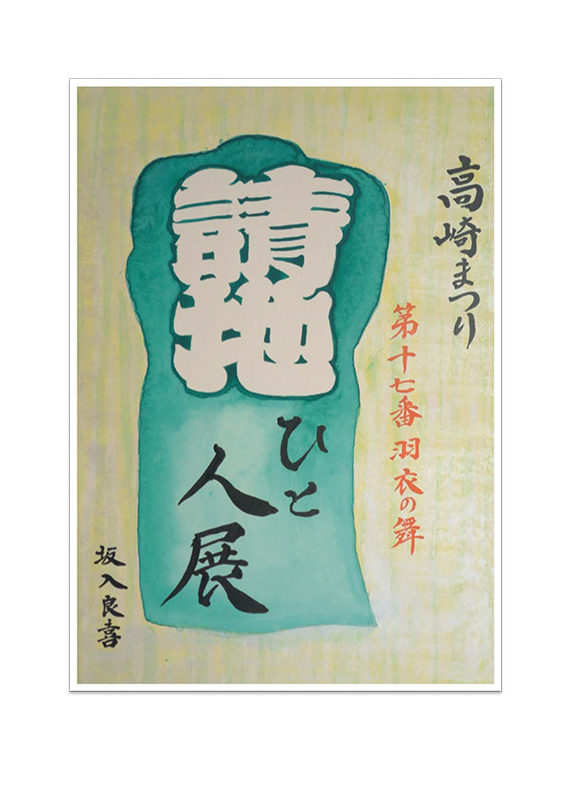 高崎まつり
第十七番 羽衣の舞
請地
ひと
人展
坂入良喜